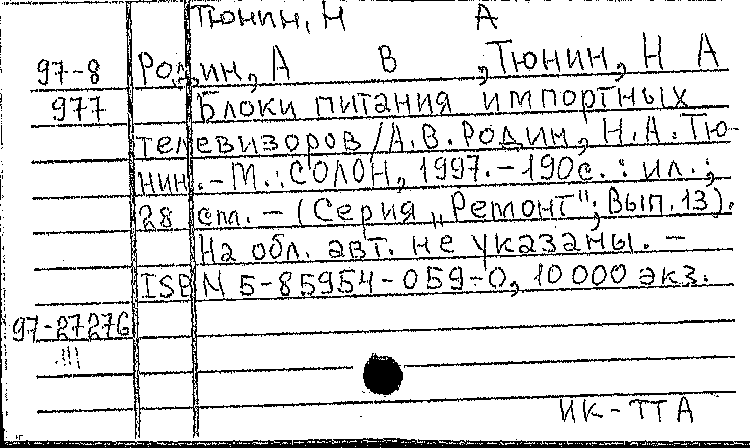 Тюнин, Н А
97-8 Родин, А В , Тюнин, Н А
977 Блоки питания импортных
телевизоров / А.В. Родин, Н.А. Тю-
нин. - М. : СОЛОН, 1997. - 190с. : ил. ;
28 см. - (Серия „Ремонт"; Вып. 13).
На обл. авт. не указаны. -
ISBN 5-85954-059-0, 10 000 экз.
97-27276
!!!
ИК-ТТА